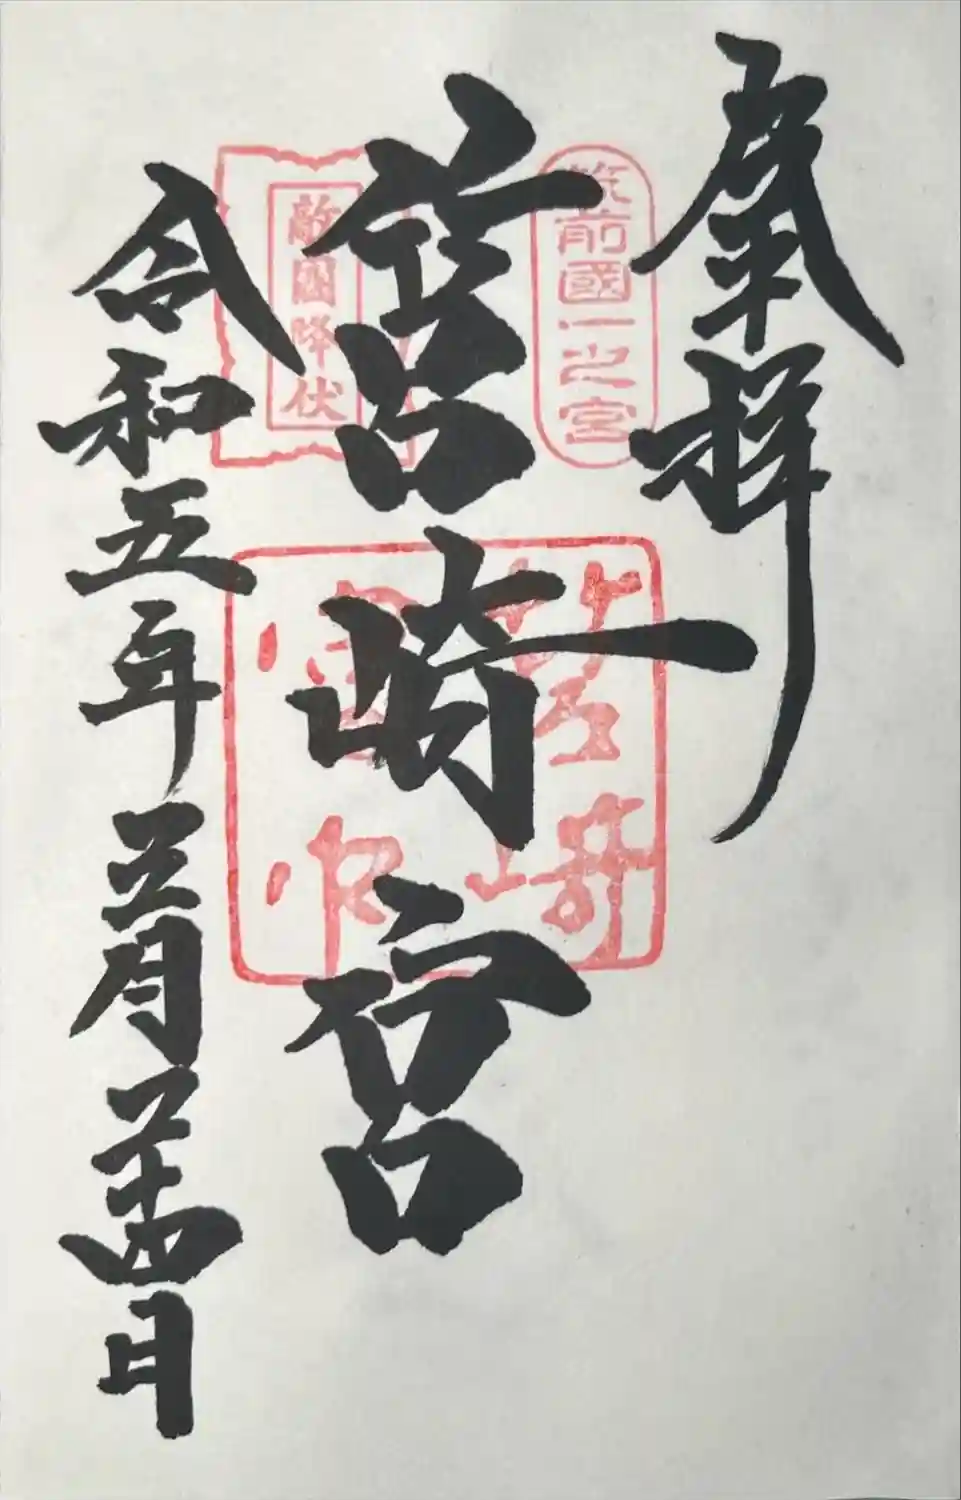 奉拝
筑前國一之宮
筥崎宮
筥崎
宮印
敵國降伏
令和五年三月二十四日